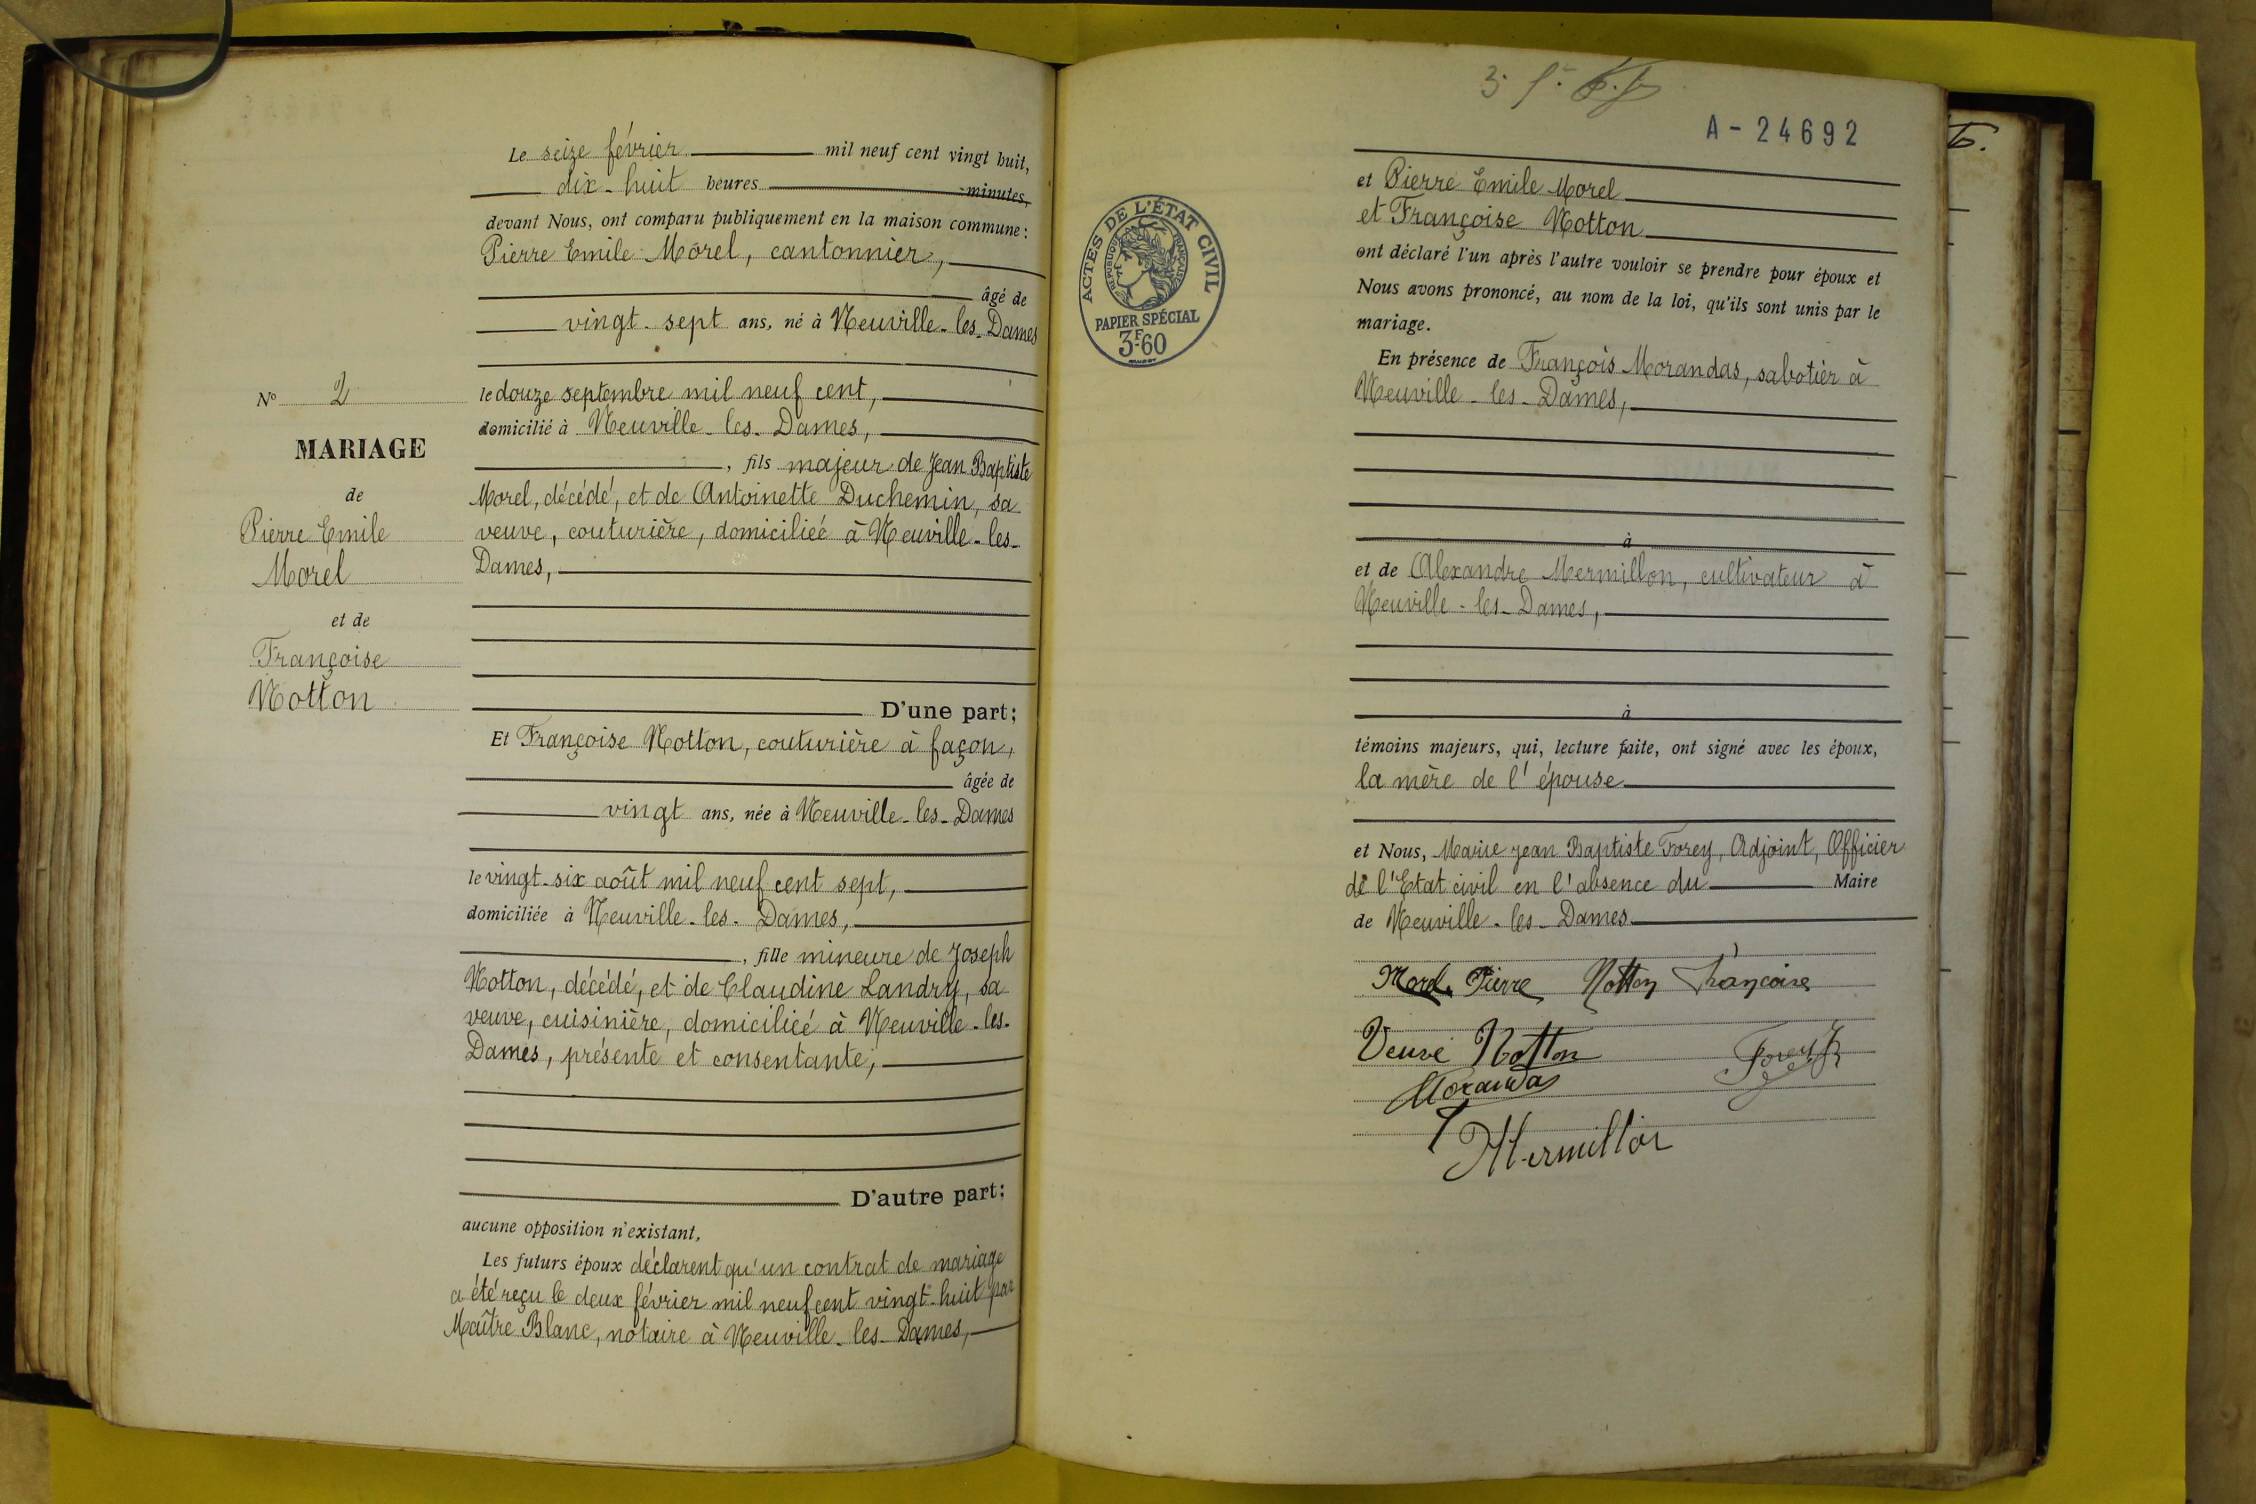 Le seize février mil neuf cent vingt huit,
dix-huit heures minutes,
devant Nous, ont comparu publiquement en la maison commune :
Pierre Emile Morel, cantonnier,
âgé de
vingt-sept ans, né à Neuville-les-Dames
le douze septembre mil neuf cent,
domicilié à Neuville-les-Dames,
, fils majeur de Jean Baptiste
Morel, décédé, et de Antoinette Duchemin, sa
veuve, couturière, domiciliée à Neuville-les-
Dames,
D'une part;
Et Françoise Notton, couturière à façon,
âgée de
vingt ans, née à Neuville-les-Dames
le vingt-six août mil neuf cent sept,
domiciliée à Neuville-les-Dames,
, fille mineure de Joseph
Notton, décédé, et de Claudine Landry, sa
veuve, cuisinière, domiciliée à Neuville-les-
Dames, présente et consentante,
D'autre part:
aucune opposition n'existant,
Les futurs époux déclarent qu'un contrat de mariage
a été reçu le deux février mil neuf cent vingt-huit par
Maître Blanc, notaire à Neuville-les-Dames,
No 2
MARIAGE
de
Pierre Emile
Morel
et de
Françoise
Notton
A-24692
ACTES DE L'ÉTAT CIVIL
RÉPUBLIQUE FRANÇAISE
PAPIER SPÉCIAL
3F.60
et Pierre Emile Morel
et Françoise Notton
ont déclaré l'un après l'autre vouloir se prendre pour époux et
Nous avons prononcé, au nom de la loi, qu'ils sont unis par le
mariage.
En présence de François Morandas, sabotier à
Neuville-les-Dames,
à
et de Alexandre Mermillon, cultivateur à
Neuville-les-Dames,
à
témoins majeurs, qui, lecture faite, ont signé avec les époux,
la mère de l'épouse
et Nous, Marie Jean Baptiste Forey, Adjoint, Officier
de l'Etat civil en l'absence du Maire
de Neuville-les-Dames
Morel Pierre Notton Françoise
Veuve Notton Forey
Morandas
Mermillon